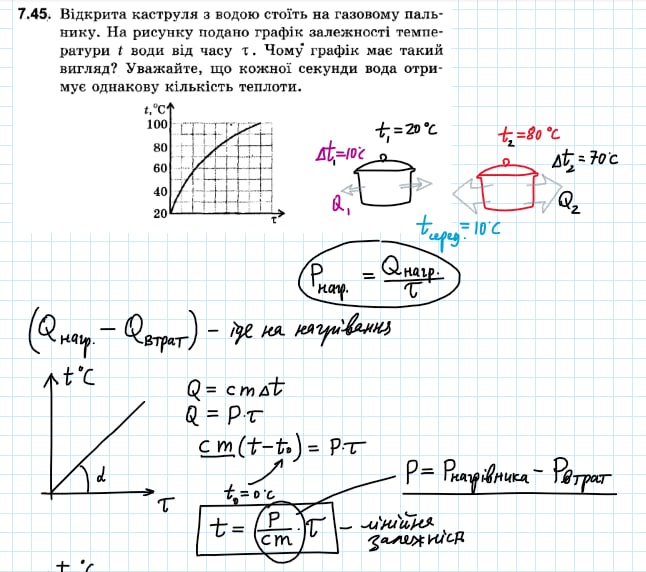 7.45. Відкрита каструля з водою стоїть на газовому паль-
нику. На рисунку подано графік залежності темпе-
ратури t води від часу τ. Чому графік має такий
вигляд? Уважайте, що кожної секунди вода отри-
мує однакову кількість теплоти.
t,°C
100
80
60
40
20
τ
t₁=20°C
Δt₁=10°C
Q₁
t₂=80°C
Δt₂=70°C
Q₂
tсеред.=10°C
Pнагр. = Qнагр./τ
(Qнагр. − Qвтрат) – іде на нагрівання
t°C
α
τ
Q = cmΔt
Q = P·τ
cm(t−t₀) = P·τ
t₀=0°C
P = Pнагрівника − Pвтрат
t = P/cm · τ – лінійна
залежність
t °C